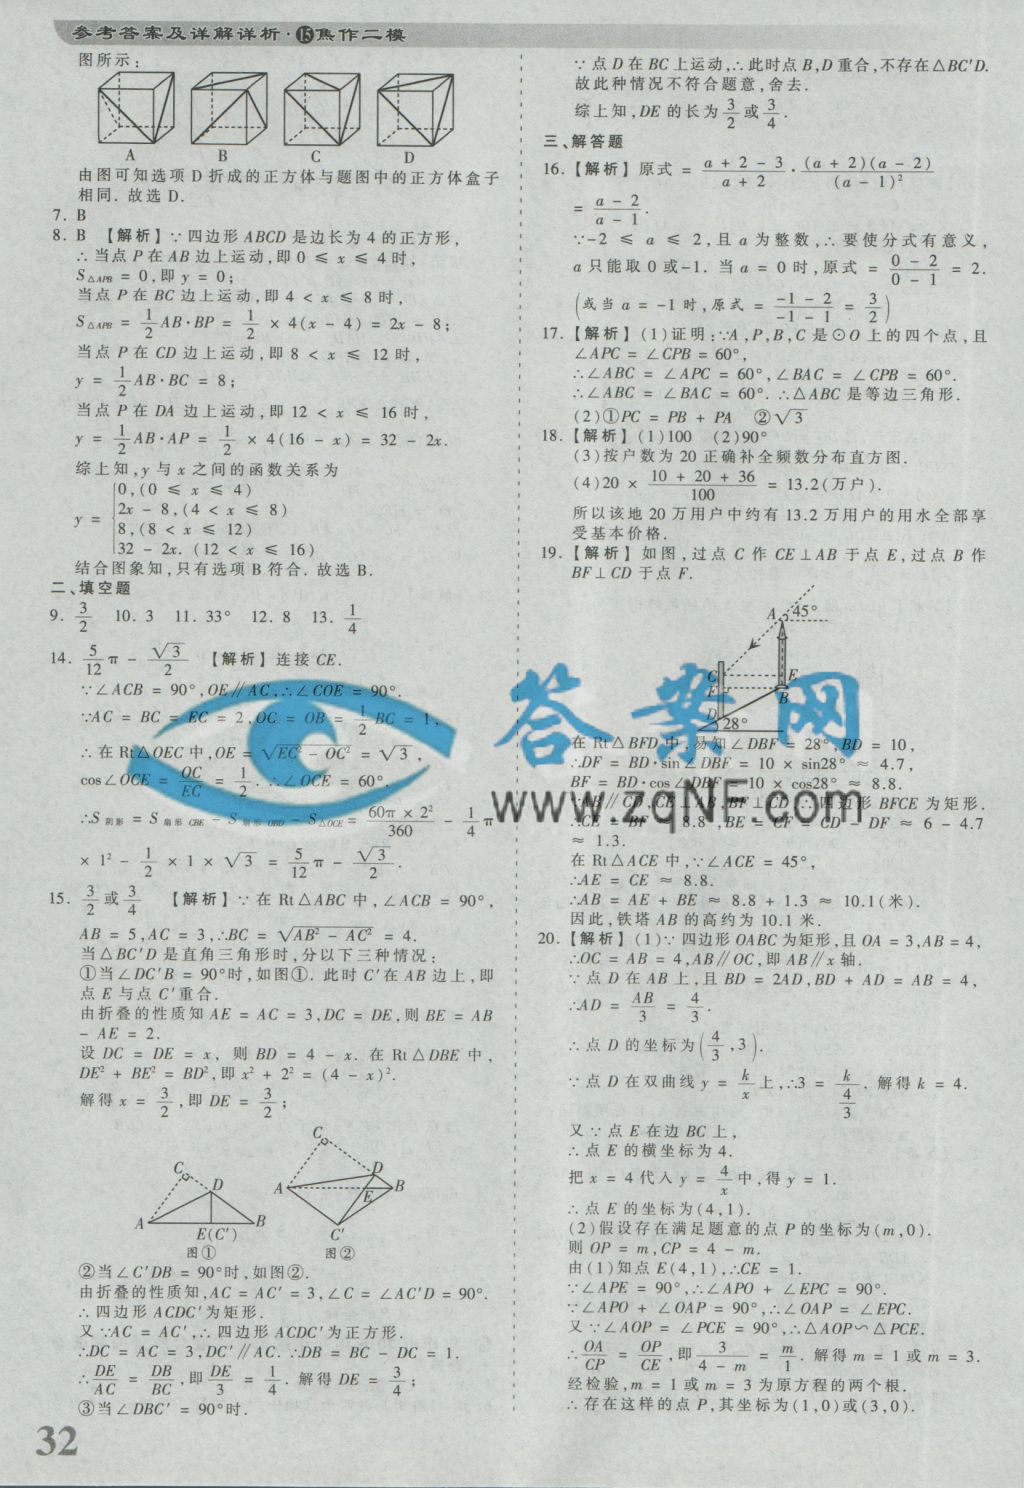 参考答案及详解详析·⑮焦作二模
图所示:
A B C D
由图可知选项 D 折成的正方体与题图中的正方体盒子
相同. 故选 D.
7. B
8. B 【解析】∵四边形 ABCD 是边长为 4 的正方形,
∴当点 P 在 AB 边上运动,即 0 ≤ x ≤ 4 时,
S△APB = 0,即 y = 0;
当点 P 在 BC 边上运动,即 4 < x ≤ 8 时,
S△APB = 1/2 AB·BP = 1/2 × 4(x − 4) = 2x − 8;
当点 P 在 CD 边上运动,即 8 < x ≤ 12 时,
y = 1/2 AB·BC = 8;
当点 P 在 DA 边上运动,即 12 < x ≤ 16 时,
y = 1/2 AB·AP = 1/2 × 4(16 − x) = 32 − 2x.
综上知,y 与 x 之间的函数关系为
y = {0,(0 ≤ x ≤ 4)
2x − 8,(4 < x ≤ 8)
8,(8 < x ≤ 12)
32 − 2x. (12 < x ≤ 16)
结合图象知,只有选项 B 符合. 故选 B.
二、填空题
9. 3/2 10. 3 11. 33° 12. 8 13. 1/4
14. 5/12 π − √3/2 【解析】连接 CE.
∵∠ACB = 90°,OE∥AC,∴∠COE = 90°.
∵AC = BC = EC = 2,OC = OB = 1/2 BC = 1,
∴在 Rt△OEC 中,OE = √(EC² − OC²) = √3,
cos∠OCE = OC/EC = 1/2. ∴∠OCE = 60°.
∴S阴影 = S扇形CBE − S扇形OBD − S△OCE = 60π × 2²/360 − 1/4 π
× 1² − 1/2 × 1 × √3 = 5/12 π − √3/2.
15. 3/2 或 3/4 【解析】∵在 Rt△ABC 中,∠ACB = 90°,
AB = 5,AC = 3,∴BC = √(AB² − AC²) = 4.
当△BC′D 是直角三角形时,分以下三种情况:
①当∠DC′B = 90°时,如图①. 此时 C′在 AB 边上,即
点 E 与点 C′重合.
由折叠的性质知 AE = AC = 3,DC = DE,则 BE = AB
− AE = 2.
设 DC = DE = x, 则 BD = 4 − x. 在 Rt△DBE 中,
DE² + BE² = BD²,即 x² + 2² = (4 − x)².
解得 x = 3/2,即 DE = 3/2;
C D A E(C′) B
图①
C D A E B C′
图②
②当∠C′DB = 90°时,如图②.
由折叠的性质知,AC = AC′ = 3,∠C = ∠AC′D = 90°.
∴四边形 ACDC′为矩形.
又∵AC = AC′,∴四边形 ACDC′为正方形.
∴DC = AC = 3,DC′∥AC. ∴DB = BC − DC = 1.
∴DE/AC = DB/BC,即 DE/3 = 1/4. 解得 DE = 3/4;
③当∠DBC′ = 90°时.
32
∵点 D 在 BC 上运动,∴此时点 B,D 重合,不存在△BC′D.
故此种情况不符合题意,舍去.
综上知,DE 的长为 3/2 或 3/4.
三、解答题
16.【解析】原式 = (a + 2 − 3)/(a + 2) · (a + 2)(a − 2)/(a − 1)²
= (a − 2)/(a − 1).
∵−2 ≤ a ≤ 2,且 a 为整数,∴要使分式有意义,
a 只能取 0 或−1. 当 a = 0 时,原式 = (0 − 2)/(0 − 1) = 2.
(或当 a = −1 时,原式 = (−1 − 2)/(−1 − 1) = 3/2)
17.【解析】(1)证明:∵A,P,B,C 是⊙O 上的四个点,且
∠APC = ∠CPB = 60°,
∴∠ABC = ∠APC = 60°,∠BAC = ∠CPB = 60°.
∴∠ABC = ∠BAC = 60°. ∴△ABC 是等边三角形.
(2)①PC = PB + PA ②√3
18.【解析】(1)100 (2)90°
(3)按户数为 20 正确补全频数分布直方图.
(4)20 × (10 + 20 + 36)/100 = 13.2(万户).
所以该地 20 万用户中约有 13.2 万用户的用水全部享
受基本价格.
19.【解析】如图,过点 C 作 CE⊥AB 于点 E,过点 B 作
BF⊥CD 于点 F.
A 45° C E F B D 28°
在 Rt△BFD 中,易知∠DBF = 28°,BD = 10,
∴DF = BD·sin∠DBF = 10 × sin28° ≈ 4.7,
BF = BD·cos∠DBF = 10 × cos28° ≈ 8.8.
∵AB∥CD,CE⊥AB,BF⊥CD,∴四边形 BFCE 为矩形.
∴CE = BF ≈ 8.8,BE = CF = CD − DF ≈ 6 − 4.7
≈ 1.3.
在 Rt△ACE 中,∵∠ACE = 45°,
∴AE = CE ≈ 8.8.
∴AB = AE + BE ≈ 8.8 + 1.3 ≈ 10.1(米).
因此,铁塔 AB 的高约为 10.1 米.
20.【解析】(1)∵四边形 OABC 为矩形,且 OA = 3,AB = 4,
∴OC = AB = 4,AB∥OC,即 AB∥x 轴.
∵点 D 在 AB 上,且 BD = 2AD,BD + AD = AB = 4,
∴AD = AB/3 = 4/3.
∴点 D 的坐标为(4/3,3).
∵点 D 在双曲线 y = k/x 上,∴3 = k/(4/3). 解得 k = 4.
又∵点 E 在边 BC 上,
∴点 E 的横坐标为 4.
把 x = 4 代入 y = 4/x 中,得 y = 1.
∴点 E 的坐标为(4,1).
(2)假设存在满足题意的点 P 的坐标为(m,0).
则 OP = m,CP = 4 − m.
由(1)知点 E(4,1),∴CE = 1.
∵∠APE = 90°,∴∠APO + ∠EPC = 90°.
∵∠APO + ∠OAP = 90°,∴∠OAP = ∠EPC.
又∵∠AOP = ∠PCE = 90°,∴△AOP∽△PCE.
∴OA/CP = OP/CE,即 3/(4 − m) = m/1. 解得 m = 1 或 m = 3.
经检验,m = 1 或 m = 3 为原方程的两个根.
∴存在这样的点 P,其坐标为(1,0)或(3,0).
答案网
www.zqNF.com